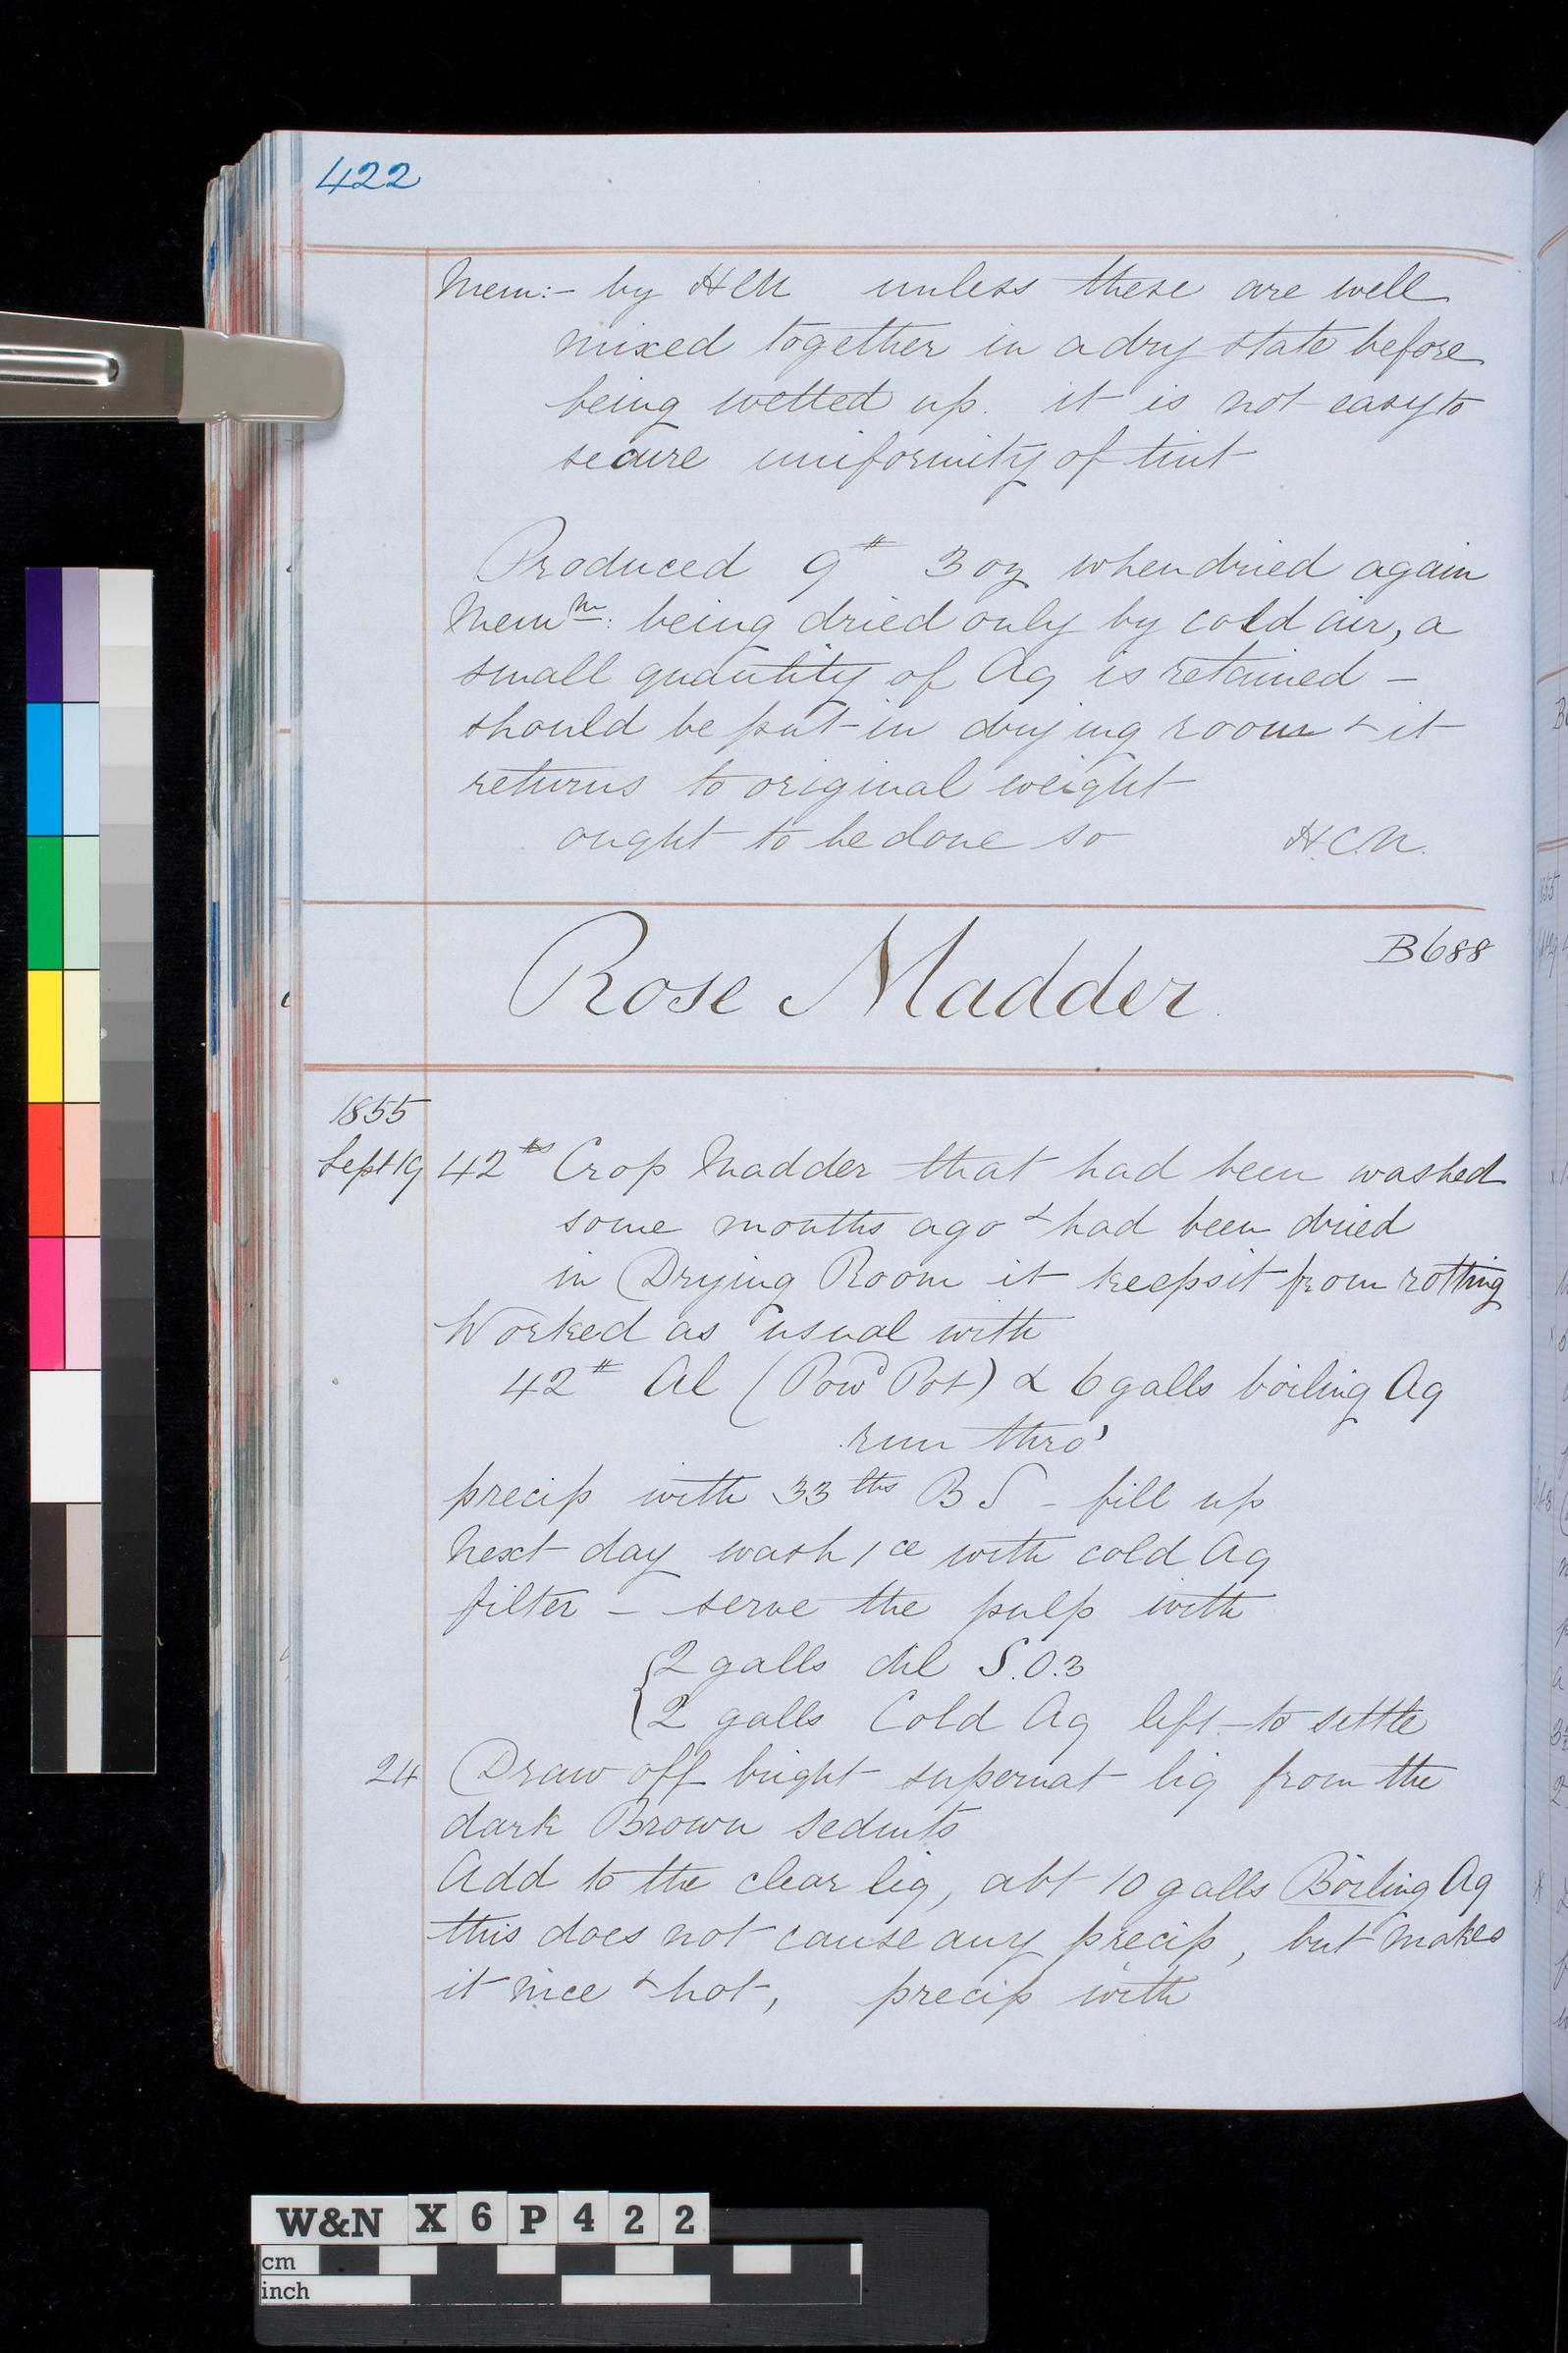 422
Mem:- by HCN unless these are well
mixed together in a dry state before
being wetted up. it is not easy to
secure uniformity of tint
Produced 9# 3 oz when dried again
Memm: being dried only by cold air, a
small quantity of Aq is retained -
should be put in drying room & it
returns to original weight
ought to be done so H.C.N.
Rose Madder B688
1855
Sept 19 42 lbs Crop Madder that had been washed
some months ago & had been dried
in Drying Room it keeps it from rotting
Worked as usual with
42# Al (Powd Pot) & 6 galls boiling Aq
run thro'
precip with 33 lbs B S - fill up
Next day wash 1ce with cold Aq
filter - serve the pulp with
{2 galls dil S.O.3
2 galls Cold Aq left to settle
24 Draw off bright supernat liq from the
dark Brown sedmts
Add to the clear liq, abt 10 galls Boiling Aq
this does not cause any precip, but makes
it nice & hot, precip with
W&N X 6 P 4 2 2
cm
inch